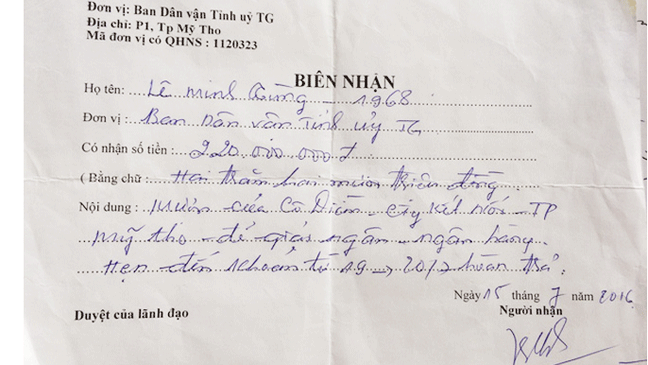 Đơn vị: Ban Dân vận Tỉnh uỷ TG
Địa chỉ: P1, Tp Mỹ Tho
Mã đơn vị có QHNS : 1120323
BIÊN NHẬN
Họ tên: Lê minh Hùng - 1968
Đơn vị : Ban Dân vân Tỉnh ủy TG
Có nhận số tiền : 220.000.000đ
( Bằng chữ : Hai trăm hai mươi triệu đồng
Nội dung : mượn của Cô Diễm - Cty Kết Nối - TP
mỹ tho - để giải ngân - ngân hàng.
Hẹn đến khoản từ 19 → 20/7 hoàn trả.
Ngày 15 tháng 7 năm 2016
Duyệt của lãnh đạo
Người nhận